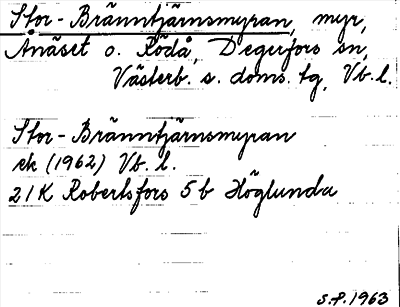 Stor-Bränntjärnsmyran, myr,
Anäset o. Rödå, Degerfors sn,
Västerb. s. doms. tg, Vb. l.
Stor-Bränntjärnsmyran
ek (1962) Vb. l.
21K Robertsfors 5b Höglunda
S.P. 1963